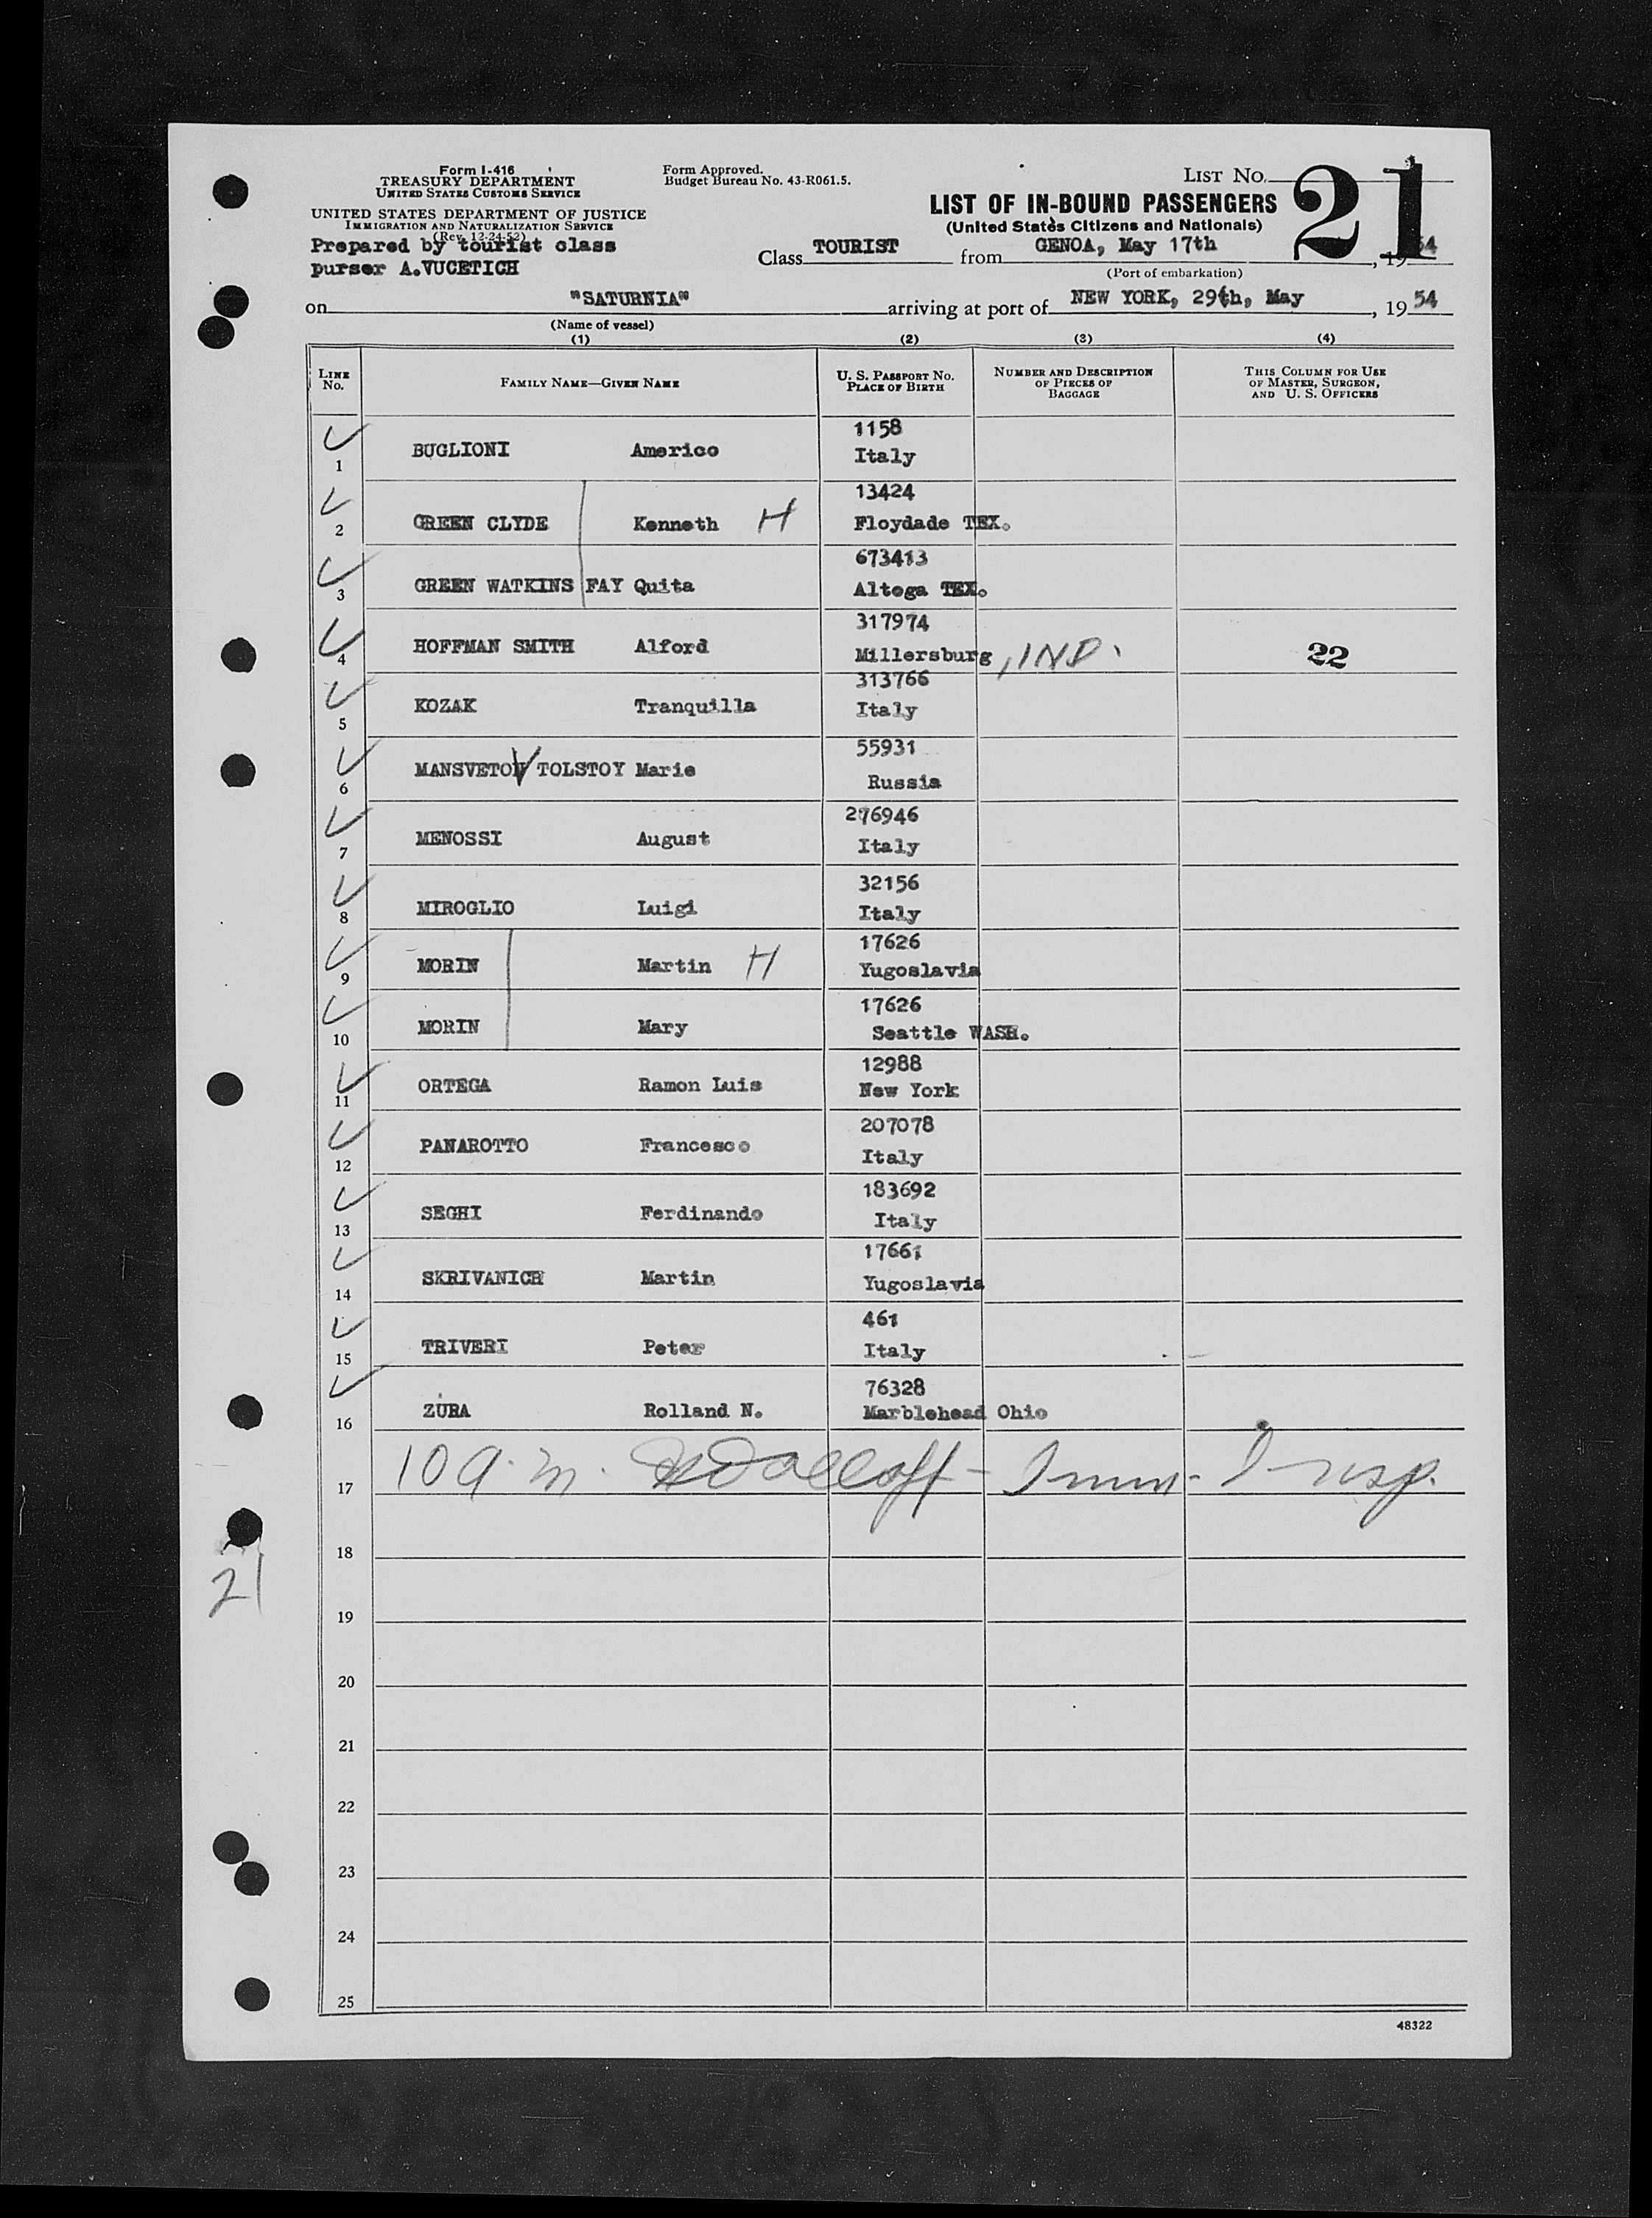 Form I-416
TREASURY DEPARTMENT
UNITED STATES CUSTOMS SERVICE
UNITED STATES DEPARTMENT OF JUSTICE
IMMIGRATION AND NATURALIZATION SERVICE
(Rev. 12-24-52)
Prepared by tourist class
purser A.VUCETICH
Form Approved.
Budget Bureau No. 43-R061.5.
LIST No. 21
LIST OF IN-BOUND PASSENGERS
(United States Citizens and Nationals)
Class TOURIST from GENOA, May 17th, 1954
(Port of embarkation)
on "SATURNIA" arriving at port of NEW YORK, 29th, May, 1954
(Name of vessel)
(1) (2) (3) (4)
LINE No. FAMILY NAME—GIVEN NAME U. S. PASSPORT NO. PLACE OF BIRTH NUMBER AND DESCRIPTION OF PIECES OF BAGGAGE THIS COLUMN FOR USE OF MASTER, SURGEON, AND U. S. OFFICERS
1 BUGLIONI Americo 1158 Italy
2 GREEN CLYDE Kenneth H 13424 Floydade TEX.
3 GREEN WATKINS FAY Quita 673413 Altoga TEX.
4 HOFFMAN SMITH Alford 317974 Millersburg, IND. 22
5 KOZAK Tranquilla 313766 Italy
6 MANSVETOV TOLSTOY Marie 55931 Russia
7 MENOSSI August 276946 Italy
8 MIROGLIO Luigi 32156 Italy
9 MORIN Martin H 17626 Yugoslavia
10 MORIN Mary 17626 Seattle WASH.
11 ORTEGA Ramon Luis 12988 New York
12 PANAROTTO Francesco 207078 Italy
13 SEGHI Ferdinando 183692 Italy
14 SKRIVANICH Martin 17661 Yugoslavia
15 TRIVERI Peter 461 Italy
16 ZURA Rolland N. 76328 Marblehead Ohio
17 10 a.m. Imm. Insp.
18
21
19
20
21
22
23
24
25
48322